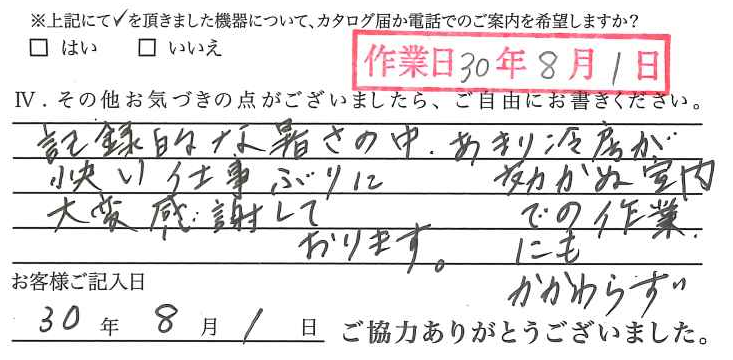 ※上記にて✓を頂きました機器について、カタログ届か電話でのご案内を希望しますか?
□ はい □ いいえ
作業日30年8月1日
Ⅳ.その他お気づきの点がございましたら、ご自由にお書きください。
記録的な暑さの中、あまり冷房が
効かぬ室内
での作業
にも
かかわらず
快い仕事ぶりに
大変感謝して
おります。
お客様ご記入日
30年8月1日
ご協力ありがとうございました。